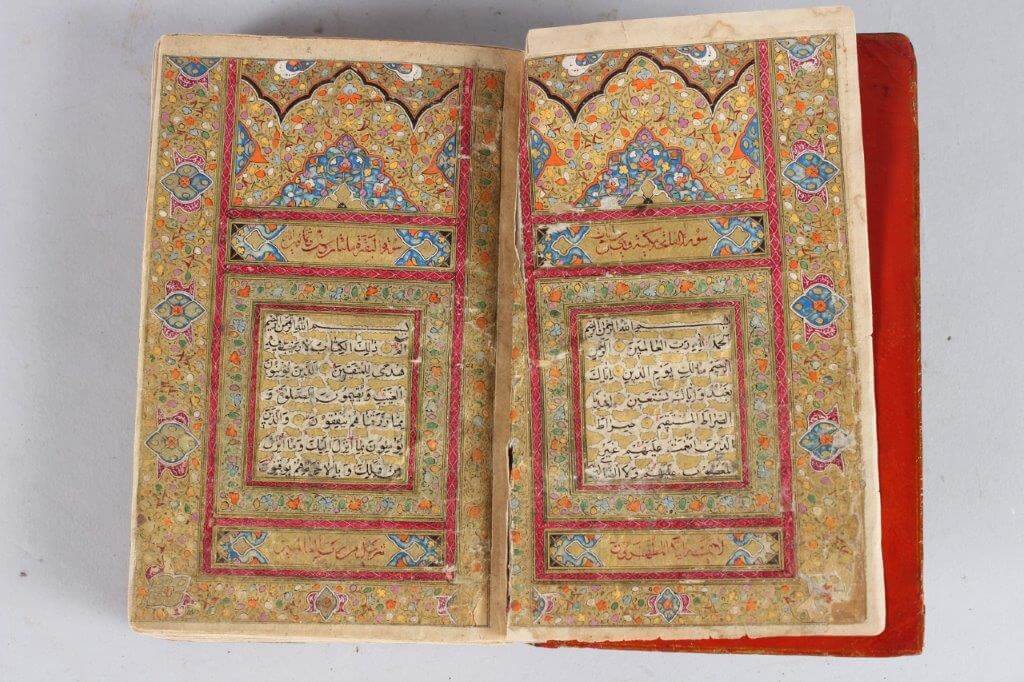 سورة
بسم الله الرحمن الرحيم
الحمد لله رب العالمين الرحمن
الرحيم مالك يوم الدين اياك
نعبد و اياك نستعين اهدنا
الصراط المستقيم صراط
الذين انعمت عليهم غير
المغضوب عليهم ولا الضالين
لا يمسه الا المطهرون
سورة البقرة مائتان
بسم الله الرحمن الرحيم
الم ذلك الكتاب لا ريب فيه
هدى للمتقين الذين يؤمنون
بالغيب و يقيمون الصلوة و
مما رزقناهم ينفقون والذين
يؤمنون بما انزل اليك وما انزل
من قبلك وبالاخرة هم يوقنون
تنزيل من رب العالمين